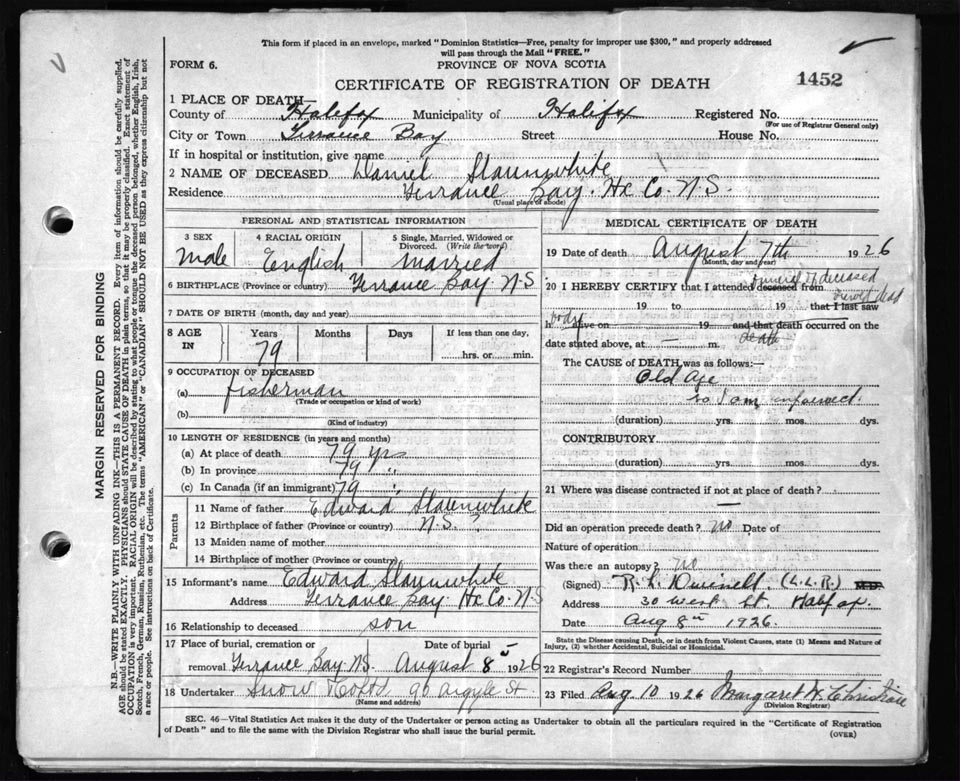 This form if placed in an envelope, marked "Dominion Statistics—Free, penalty for improper use $300," and properly addressed
will pass through the Mail "FREE."
FORM 6.
PROVINCE OF NOVA SCOTIA
CERTIFICATE OF REGISTRATION OF DEATH
1452
1 PLACE OF DEATH
County of Halifax Municipality of Halifax Registered No.
(For use of Registrar General only)
City or Town Terrance Bay Street House No.
If in hospital or institution, give name
2 NAME OF DECEASED Daniel Slaunwhite
Residence Terrance Bay. Hx Co. N.S.
(Usual place of abode)
PERSONAL AND STATISTICAL INFORMATION
3 SEX
4 RACIAL ORIGIN
5 Single, Married, Widowed or Divorced. (Write the word)
Male English Married
6 BIRTHPLACE (Province or country) Terrance Bay N.S
7 DATE OF BIRTH (month, day and year)
8 AGE IN
Years Months Days If less than one day,
79
hrs. or min.
9 OCCUPATION OF DECEASED
(a) fisherman
(Trade or occupation or kind of work)
(b)
(Kind of industry)
10 LENGTH OF RESIDENCE (in years and months)
(a) At place of death 79 yrs
(b) In province 79 "
(c) In Canada (if an immigrant) 79 "
Parents
11 Name of father Edward Slaunwhite
12 Birthplace of father (Province or country) N.S. ?
13 Maiden name of mother
14 Birthplace of mother (Province or country)
15 Informant's name Edward Slaunwhite
Address Terrance Bay. Hx Co. N.S
16 Relationship to deceased son
17 Place of burial, cremation or removal Terrance Bay N.S.
Date of burial August 8th 1926
18 Undertaker Snow & Co 90 Argyle St.
(Name and address)
MEDICAL CERTIFICATE OF DEATH
19 Date of death August 7th 1926
(Month, day and year)
20 I HEREBY CERTIFY that I attended deceased from
viewed dead
19 to 19 that I last saw
body
h alive on 19 and that death occurred on the
death
date stated above, at — m.
The CAUSE of DEATH was as follows:—
Old Age
so I am informed.
(duration) yrs. mos. dys.
CONTRIBUTORY
(duration) yrs. mos. dys.
21 Where was disease contracted if not at place of death?
—
Did an operation precede death? No Date of
Nature of operation
Was there an autopsy? No
(Signed) (L.L.R.) M.D.
Address 30 West St. Halifax.
Date Aug 8th 1926.
State the Disease causing Death, or in death from Violent Causes, state (1) Means and Nature of
Injury, (2) whether Accidental, Suicidal or Homicidal.
22 Registrar's Record Number
23 Filed Aug 10 1926 Margaret Christian
(Division Registrar)
SEC. 46—Vital Statistics Act makes it the duty of the Undertaker or person acting as Undertaker to obtain all the particulars required in the "Certificate of Registration
of Death" and to file the same with the Division Registrar who shall issue the burial permit.
(OVER)
MARGIN RESERVED FOR BINDING
N.B.—WRITE PLAINLY WITH UNFADING INK—THIS IS A PERMANENT RECORD. Every item of information should be carefully supplied.
AGE should be stated EXACTLY. PHYSICIANS should STATE CAUSE OF DEATH in plain terms, so that it may be properly classified. Exact statement of
OCCUPATION is very important. RACIAL ORIGIN will be described by stating to what people or tongue the deceased person belonged, whether English, Irish,
Scotch, French, German, Russian, Ruthenian, etc. The terms "AMERICAN" or "CANADIAN" SHOULD NOT BE USED as they express citizenship but not
a race or people. See instructions on back of Certificate.